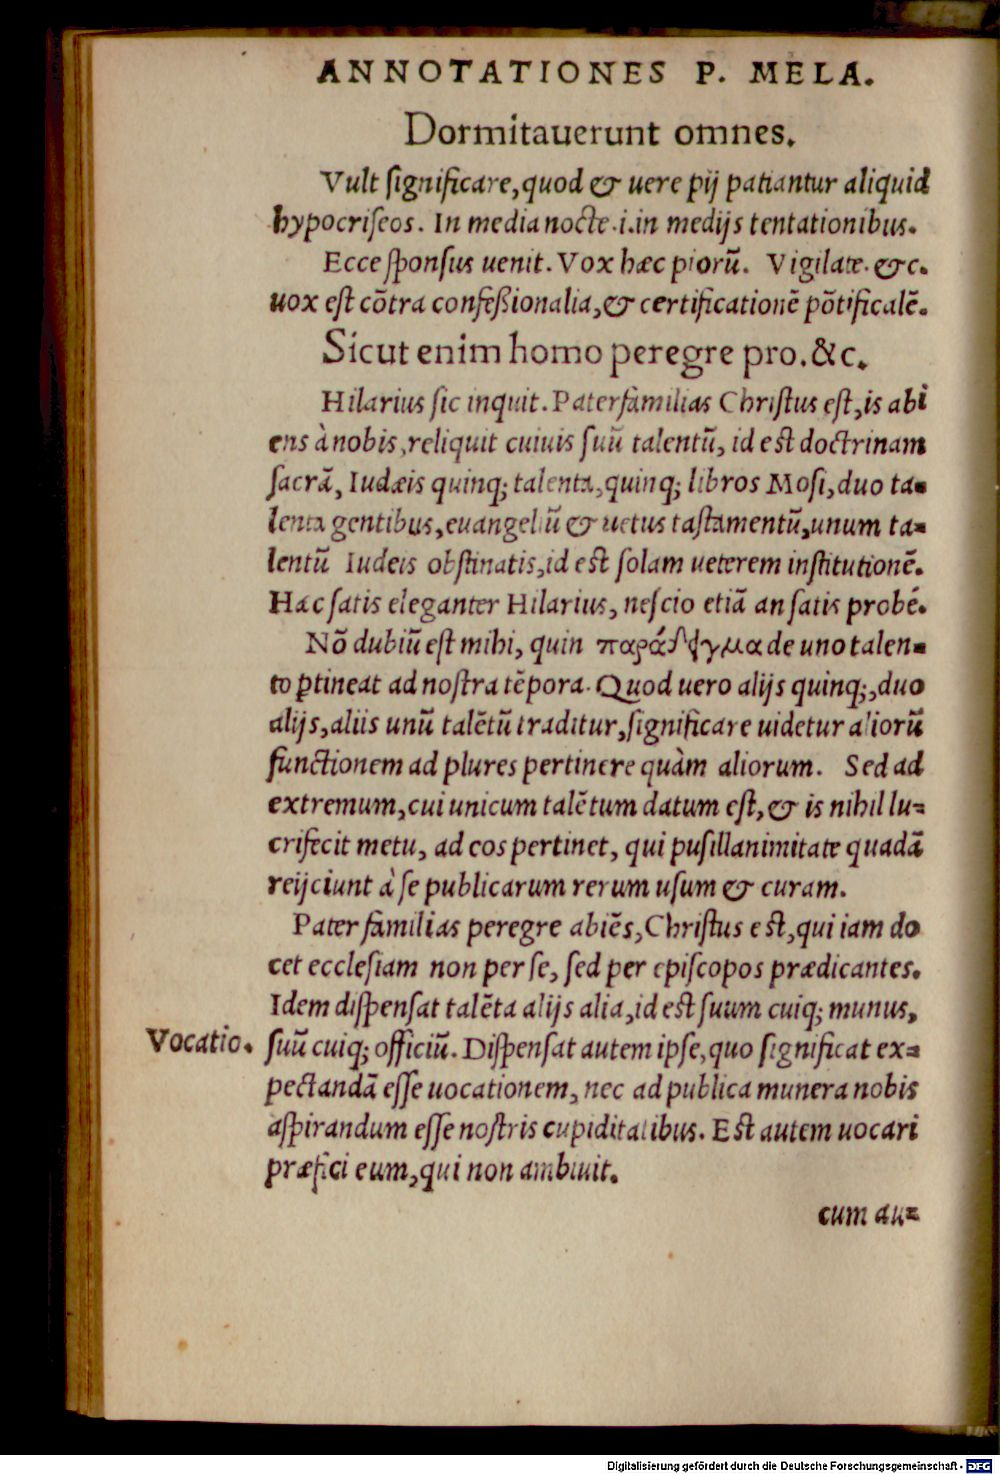 ANNOTATIONES P. MELA.
Dormitauerunt omnes.
Vult ſignificare, quod & uere pij patiantur aliquid
hypocriſeos. In media nocte .i. in medijs tentationibus.
Ecce ſponſus uenit. Vox hæc piorũ. Vigilate. &c.
uox eſt cõtra confeßionalia, & certificationẽ põtificalẽ.
Sicut enim homo peregre pro. &c.
Hilarius ſic inquit. Paterfamilias Chriſtus eſt, is abi
ens à nobis, reliquit cuiuis ſuũ talentũ, id eſt doctrinam
ſacrã, Iudæis quinq; talenta, quinq; libros Moſi, duo ta-
lenta gentibus, euangeliũ & uetus taſtamentũ, unum ta-
lentũ Iudeis obſtinatis, id eſt ſolam ueterem inſtitutionẽ.
Hac ſatis eleganter Hilarius, neſcio etiã an ſatis probé.
Nõ dubiũ eſt mihi, quin παράδειγμα de uno talen-
to ꝑtineat ad noſtra tẽpora. Quod uero alijs quinq;, duo
alijs, aliis unũ talẽtũ traditur, ſignificare uidetur aliorũ
functionem ad plures pertinere quàm aliorum. Sed ad
extremum, cui unicum talẽtum datum eſt, & is nihil lu-
crifecit metu, ad eos pertinet, qui puſillanimitate quadã
reijciunt à ſe publicarum rerum uſum & curam.
Pater familias peregre abiẽs, Chriſtus eſt, qui iam do
cet eccleſiam non per ſe, ſed per epiſcopos prædicantes.
Idem diſpenſat talẽta alijs alia, id eſt ſuum cuiq; munus,
Vocatio. ſuũ cuiq; officiũ. Diſpenſat autem ipſe, quo ſignificat ex-
pectandã eſſe uocationem, nec ad publica munera nobis
aſpirandum eſſe noſtris cupiditatibus. Eſt autem uocari
præfici eum, qui non ambiuit.
cum au-
Digitalisierung gefördert durch die Deutsche Forschungsgemeinschaft - DFG